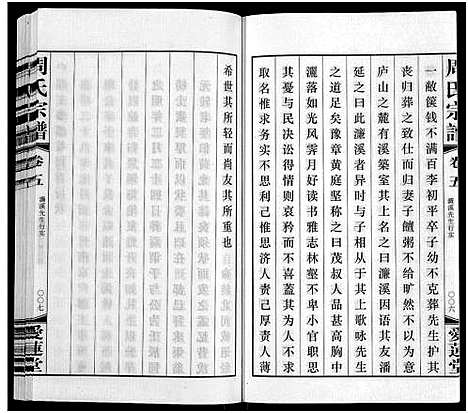 周氏宗譜
卷五
濂溪先生行实
〇〇六
愛蓮堂
一敝箧钱不满百李初平卒子幼不克葬先生护其
丧归葬之致仕归妻子饘粥不给旷然不以为意也
庐山之麓有溪筑室其上名之曰濂溪因与其友潘
延之曰此濂溪者异时与子相从于其上歌咏先生
之道足矣豫章黄庭坚称之曰茂叔人品甚高胸中
洒落如光风霁月好读书雅志林壑不卑小官职思
其忧与民决讼得情而不喜其为人不求
取名惟求务实不惟求志不思济人责己厚责人薄
希世其所轻而尚友其所重也
周氏宗譜
卷五
濂溪先生行实
〇〇七
愛蓮堂